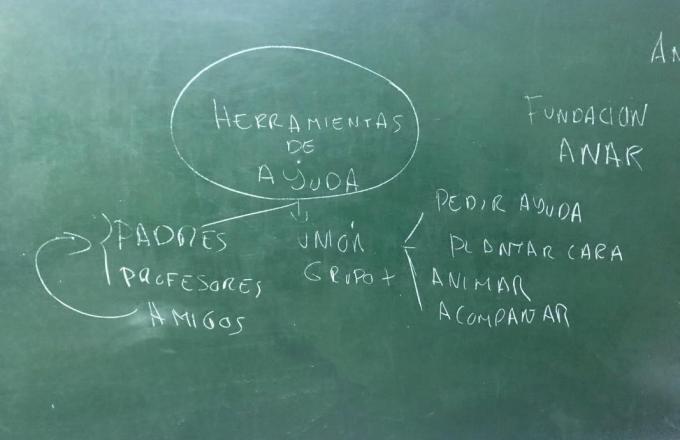 HERRAMIENTAS
DE
AYUDA
FUNDACION
ANAR
PADRES
PROFESORES
AMIGOS
UNIÓN
GRUPO +
PEDIR AYUDA
PLANTAR CARA
ANIMAR
ACOMPAÑAR